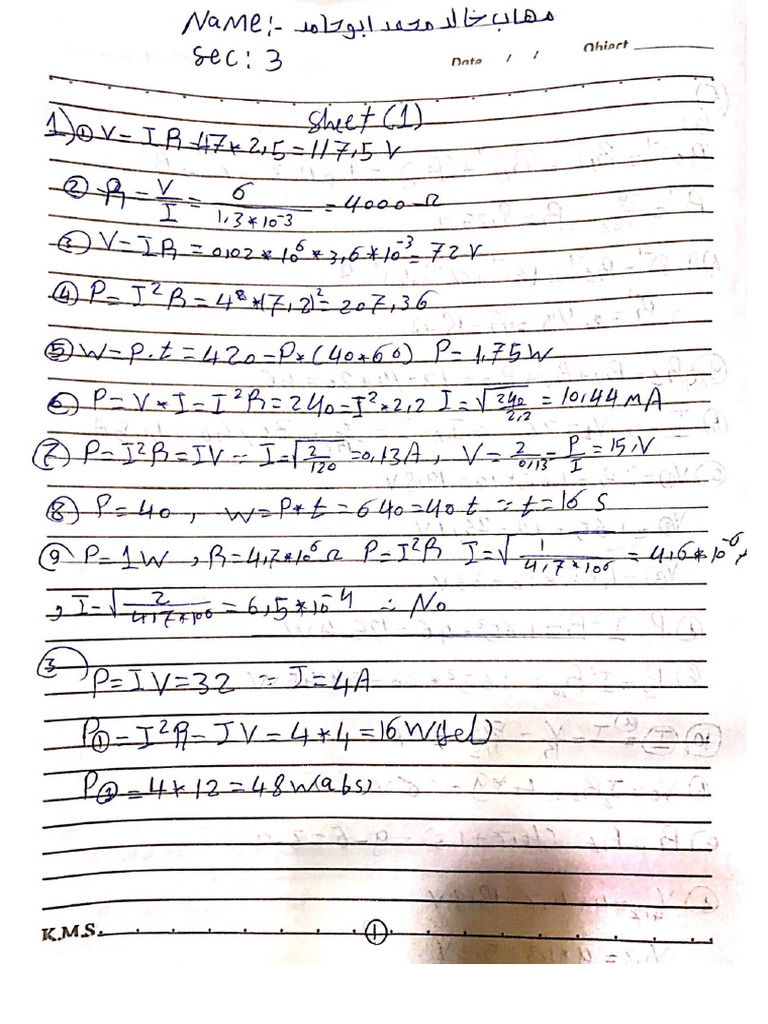 Name:- مهاب خالد محمد ابو حامد
Sec: 3
Date / / Object
Sheet (1)
1) ① V = I R = 47 * 2,5 = 117,5 V
② R = V/I = 6/1,3*10^-3 = 4000 Ω
③ V = I R = 0,02 * 10^6 * 3,6 * 10^-3 = 72 V
④ P = I^2 R = 4^8 * (7,2)^2 = 207,36
⑤ W = P.t = 420 = P * (40*60) P = 1,75 W
⑥ P = V * I = I^2 R = 240 = I^2 * 2,2 I = √240/2,2 = 10,44 mA
⑦ P = I^2 R = IV ∴ I = √2/120 = 0,13 A, V = 2/0,13 = P/I = 15 V
⑧ P = 40, W = P * t = 640 = 40 t ∴ t = 16 s
⑨ P = 1 W, R = 4,7 * 10^6 Ω P = I^2 R I = √1/4,7*10^6 = 4,6 * 10^-6
, I = √2/4,7*10^6 = 6,5 * 10^-4 ∴ No
③
P = I V = 32 ∴ I = 4A
P① = I^2 R = I V = 4 * 4 = 16 W (del)
P③ = 4 * 12 = 48 W (abs)
K.M.S. ①